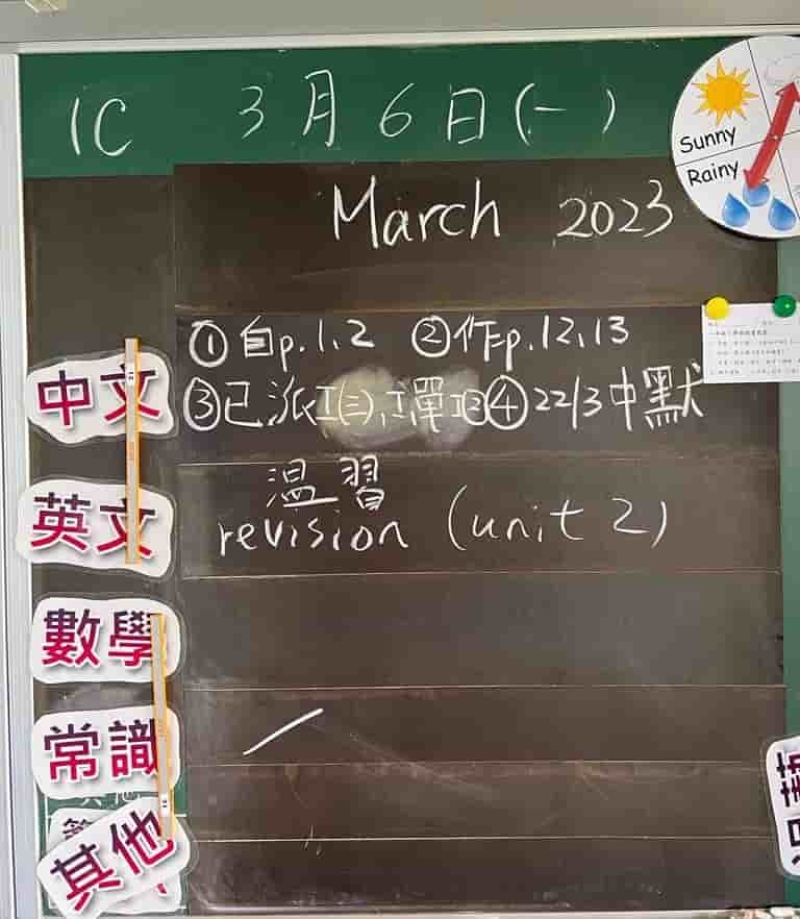 1C 3月6日(一)
Sunny
Rainy
March 2023
中文
①自p.1,2 ②作p.12,13
③已派工(三),工單工②④22/3中默
英文
溫習
revision (unit 2)
數學
常識
其他